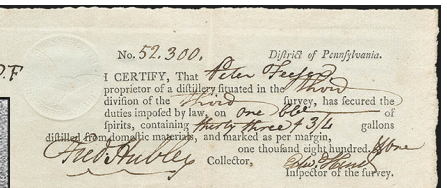 No. 52.300. District of Pennsylvania.
P.F
I CERTIFY, That Peter
proprietor of a distillery situated in the third
division of the third survey, has secured the
duties imposed by law, on one of
spirits, containing thirty three + 3/4 gallons
distilled from domestic materials, and marked as per margin,
one thousand eight hundred, & one
Fred Hubley Collector,
Inspector of the survey.